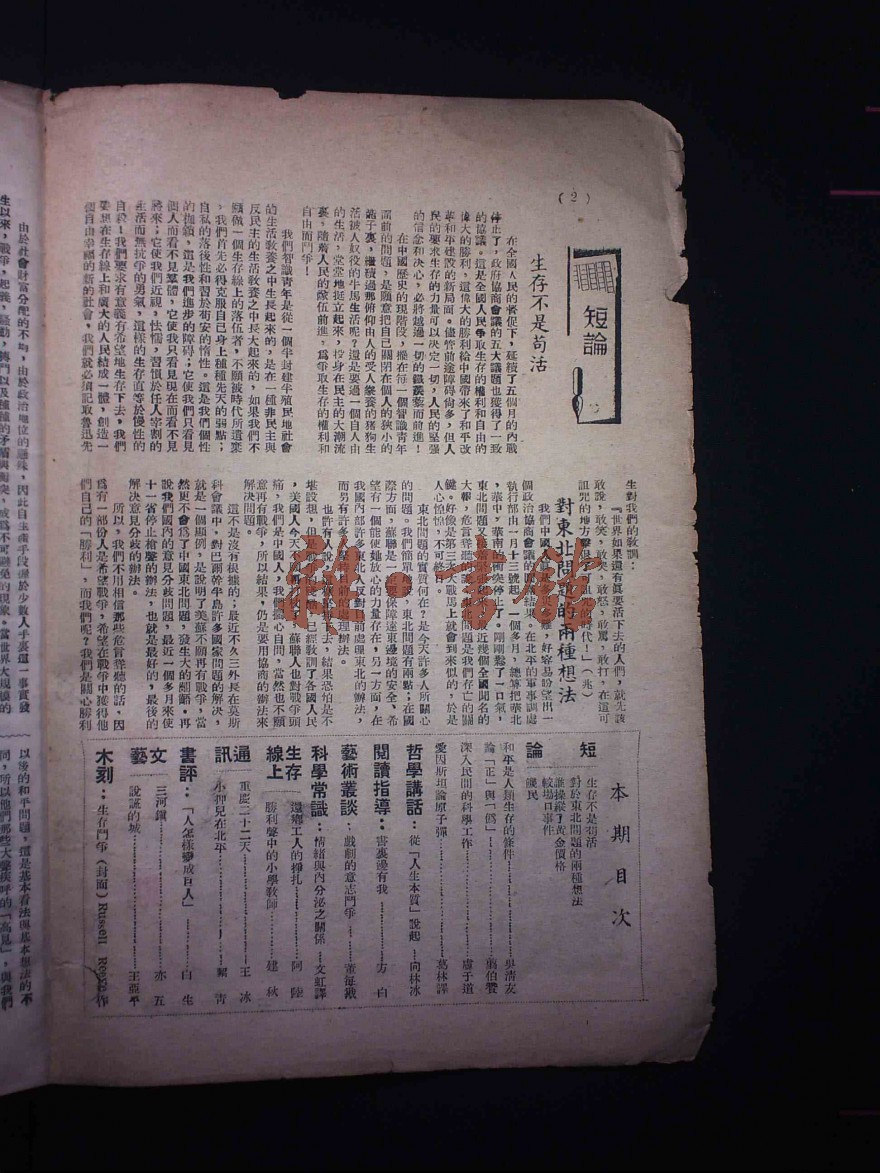 （2）
短論
生存不是苟活
在全國人民的督促下，延續了五個月的內戰
停止了，政府協商會議的五大議題也獲得了一致
的協議。這是全國人民爭取生存的權利和自由的
偉大的勝利，這偉大的勝利給中國帶來了和平改
革和平建設的新局面。儘管前途障碍尚多，但人
民的要求生存的力量可以決定一切，人民的堅強
的信念和決心，必將越過一切的鐵蒺藜而前進！
在中國歷史的現階段，擺在每一個智識青年
面前的問題，是願意把自己關閉在個人的狹小的
籠子裏，繼續過那俯仰由人的受人豢養的猪狗生
活被人奴役的牛馬生活呢？還是要過一個自人由
的生活，堂堂地挺立起來，投身在民主的大潮流
裏，隨着人民的隊伍前進，爲爭取生存的權利和
自由而鬥爭！
我們智識青年是從一個半封建半殖民地社會
的生活敎養之中生長起來的，是在一種非民主與
反民主的生活敎養之中長大起來的，如果我們不
願做一個生存線上的落伍者，不願被時代所遺棄
，我們首先必得克服自己身上種種先天的弱點；
自私的落後性和習於苟安的惰性。這是我們個性
的枷鎖，這是我們進步的障碍；它使我們只看見
個人而看不見羣體，它使我只看見現在而看不見
將來；它使我們近視，怯懦，習慣於任人宰割的
生活而無抗爭的勇氣，這樣的生存直等於慢性的
自殺！我們要求有意義有希望地生存下去，我們
要想在生存線上和廣大的人民結成一體，創造一
個自由幸福的新的社會，我們就必須記取魯迅先
生對我們的敎訓：
『世界如果還有眞要活下去的人們，就先該
敢說，敢笑，敢哭，敢怒，敢罵，敢打，在這可
詛咒的地方擊退了可詛咒的時代！』（兆）
對東北問題的兩種想法
個政治協商會議的圓滿結果。在北平的軍事調處
執行部由一月十三號起，一個多月，總算把華北
，華中，華南的衝突停止了。剛剛鬆了一口氣，
大報，危言聳聽的說
鍵。好像是第三次大戰馬上就會到來似的，於是
人心惶惶，不可終日。
東北問題的實質何在？是今天許多人所關心
的問題。我們簡單
際方面，蘇聯是一
望有一個能使她放心的力量存在，另一方面，在
我國內部許多東北人反對目前處理東北的辦法，
而另有許多
也許有人說，
堪設想，但是
，美國人今天不
痛，我們是中國人，我們撫心自問，當然也不願
意再有戰爭，所以結果，仍是要用協商的辦法來
解決問題。
這不是沒有根據的；最近不久三外長在莫斯
科會議中，對巴爾幹半島許多國家問題的解決，
就是一個顯例，是說明了美蘇不願再有戰爭，當
然更不會爲了中國東北問題，發生大的翻節。再
說我們國內的意見分歧問題，最近一個多月來使
十一省停止槍聲的辦法，也就是最好的，最後的
解決意見分歧的辦法。
所以，我們不用相信那些危言聳聽的話，因
爲有一部份人是希望戰爭，希望在戰爭中獲得他
們自己的「勝利」，而我們呢？我們是關心勝利
本期目次
短論
生存不是苟活
對於東北問題的兩種想法
誰操縱了黃金價格
較場口事件
饑民
和平是人類生存的條件……吳清友
論「正」與「僞」……翦伯贊
深入民間的科學工作……盧于道
愛因斯坦論原子彈……葛林譯
哲學講話：從「人生本質」說起……向林冰
閱讀指導：書裏邊有我……方白
藝術叢談：戲劇的意志鬥爭……董每戡
科學常識：情緒與內分泌之關係……文虹譯
生存線上
還鄉工人的掙扎……阿陸
勝利聲中的小學敎師……建秋
通訊
重慶二十二天……王冰
小押兒在北平……青
書評：「人怎樣變成巨人」……白生
文藝
三河鎮……亦五
說謊的城……王亞平
木刻：生存鬥爭（封面）Russell 作
由於社會財富分配的不均，由於政治地位的懸殊，因此自生產手段操於少數人手裏這一事實發
生以來，戰爭，起義，騷動，
以後的和平問題，還是基本看法與基本想法的不
同，所以他們那些大聲疾呼的「高見」，與我們